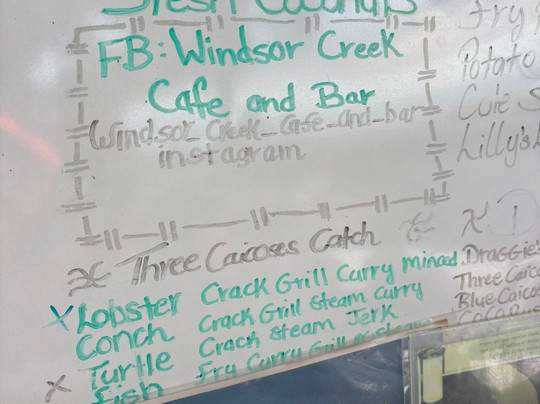 Fresh Coconuts
FB: Windsor Creek
Cafe and Bar
Windsor_Creek_Cafe_and_bar
instagram
Three Caicoses Catch
X Lobster Crack Grill Curry Minced
Conch Crack Grill Steam Curry
Turtle Crack Steam Jerk
X Fish Fry Curry Grill
Fry
Potato
Cole S
Lilly's
Draggie's
Three Caico
Blue Caico